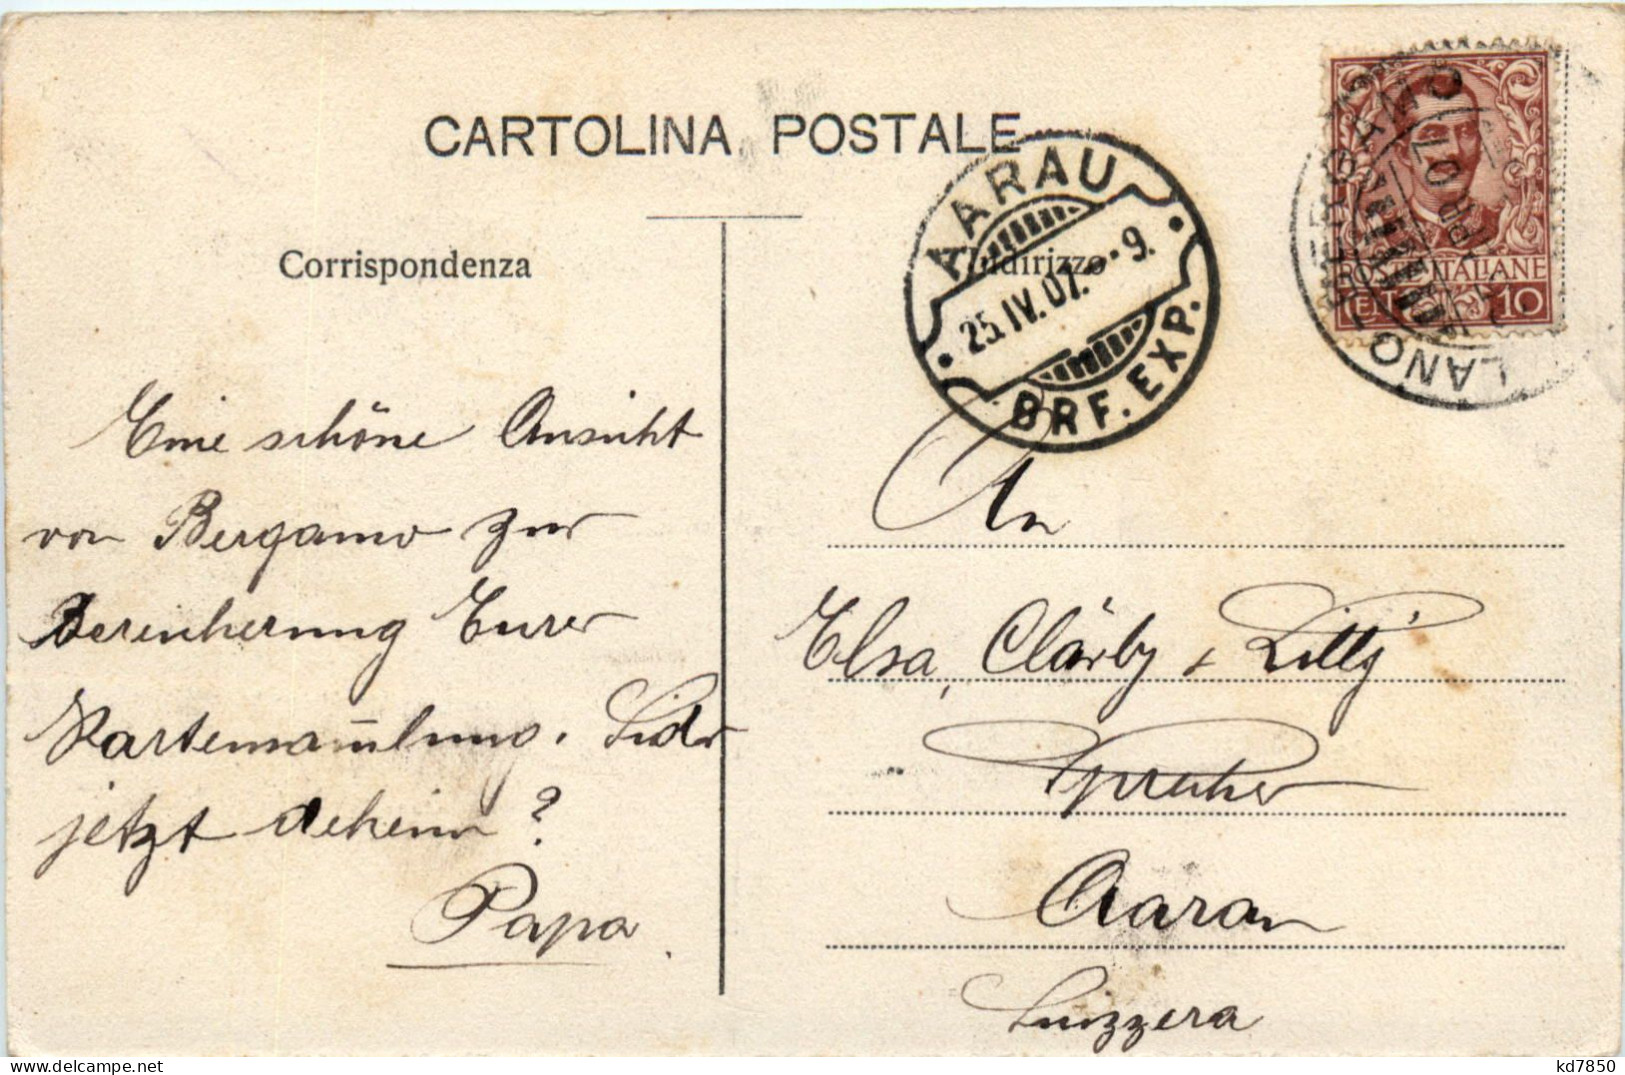 CARTOLINA POSTALE
Corrispondenza
Indirizzo
AARAU
25.IV.07.-9.
BRF. EXP.
BERGAMO
MILANO
POSTE ITALIANE
CENT. 10
Eine schöne Ansicht
von Bergamo zur
Bereicherung Eurer
Kartensammlung. Seid Ihr
jetzt daheim?
Papa
An
Elsa, Clärly & Lilly
Sprecher
Aarau
Suizzera
kd7850